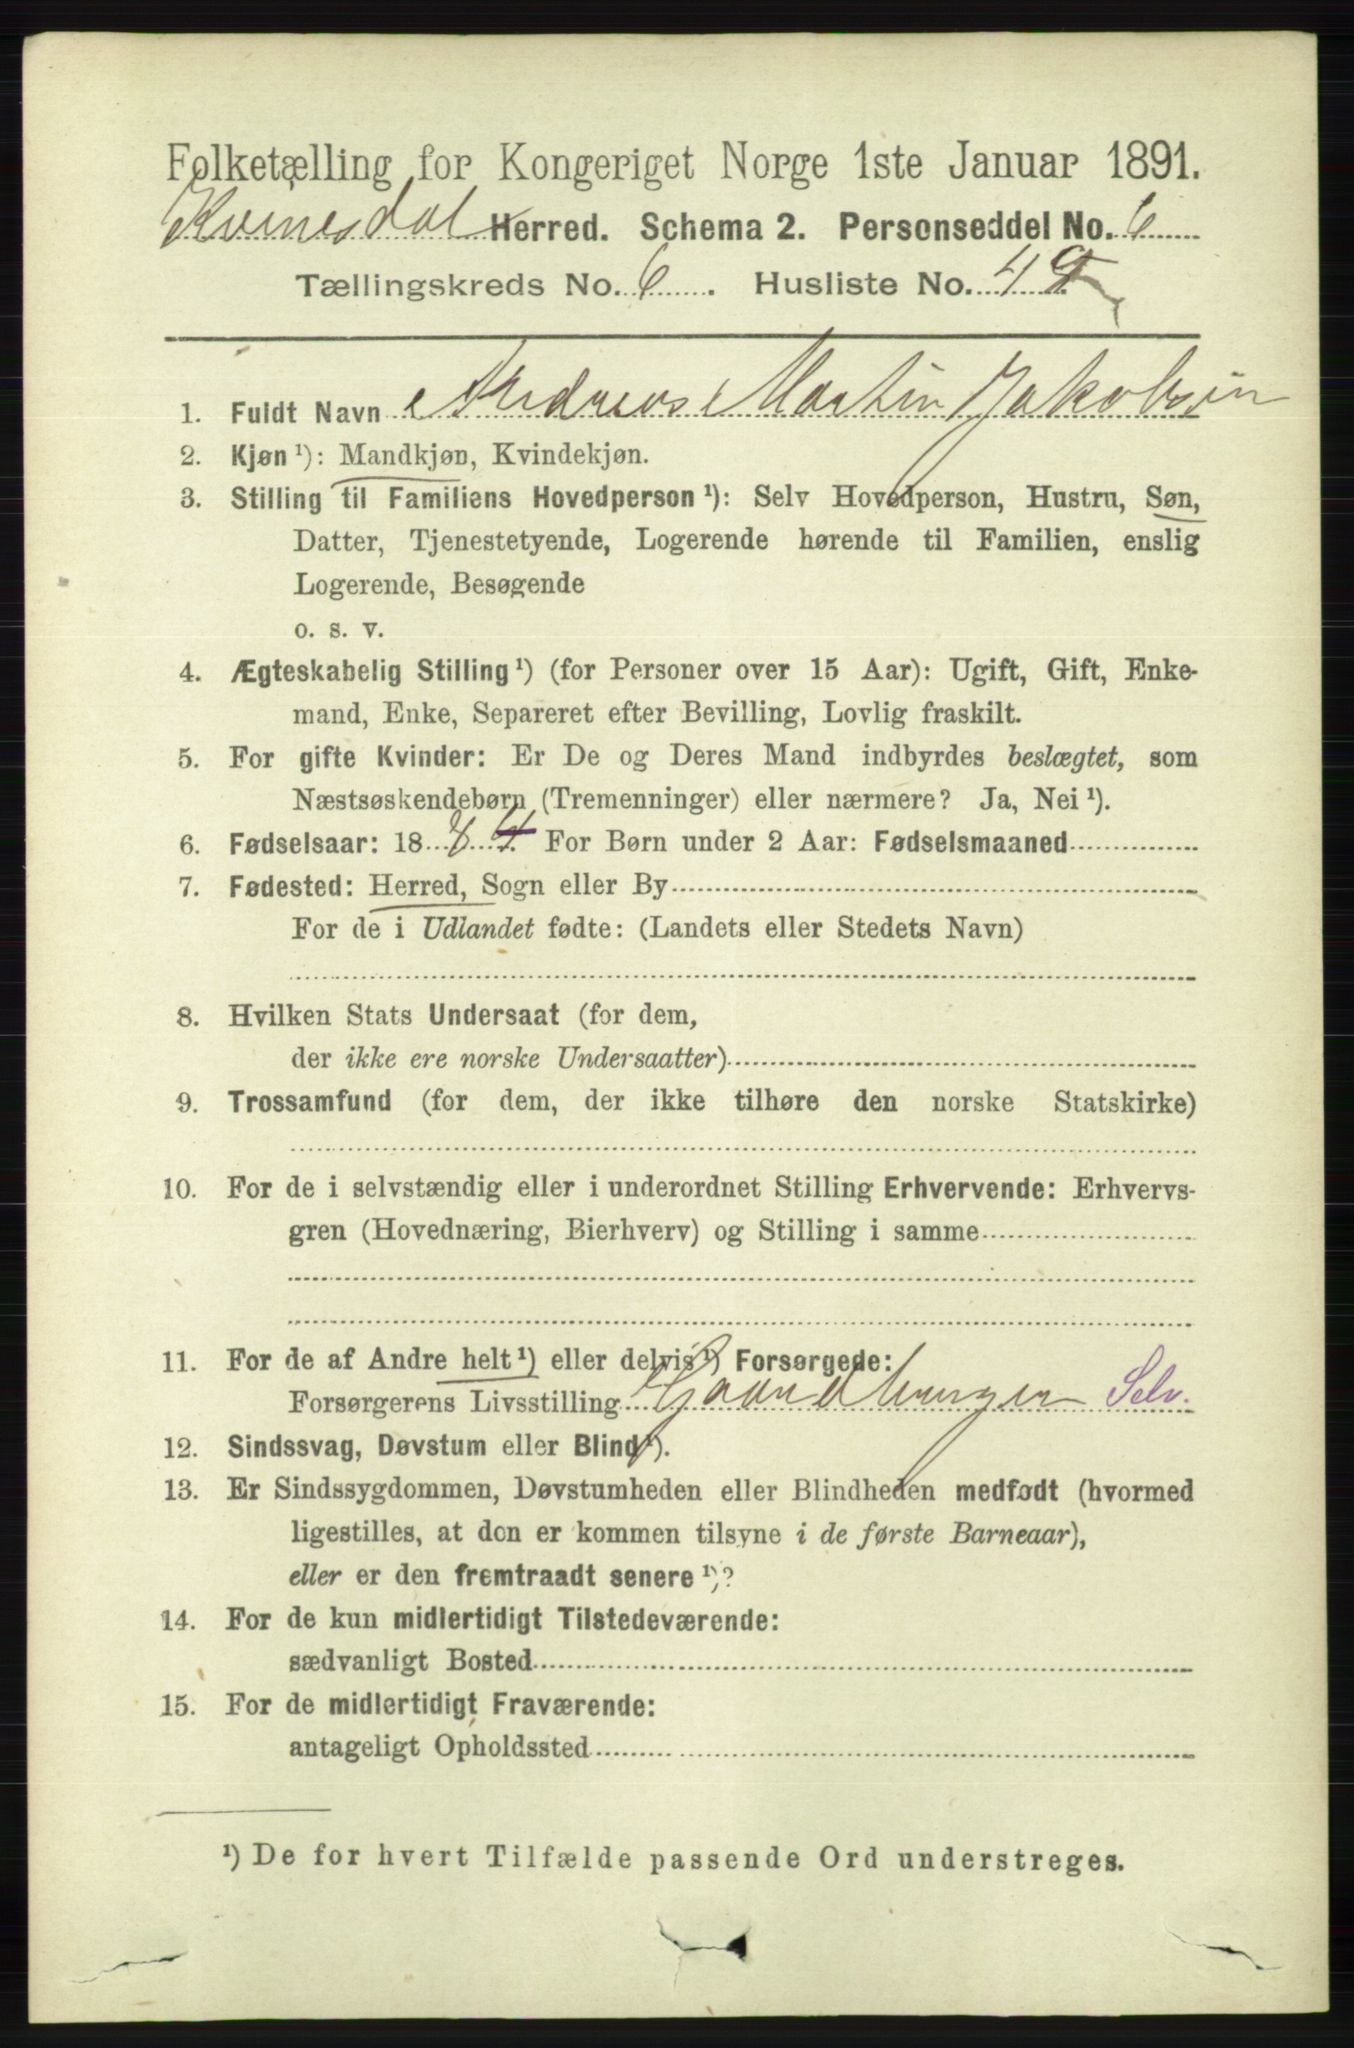 Folketælling for Kongeriget Norge 1ste Januar 1891.
Kvinesdal Herred. Schema 2. Personseddel No. 6
Tællingskreds No. 6. Husliste No. 49
1. Fuldt Navn Andreas Martin Jakobsen
2. Kjøn ¹): Mandkjøn, Kvindekjøn.
3. Stilling til Familiens Hovedperson ¹): Selv Hovedperson, Hustru, Søn,
Datter, Tjenestetyende, Logerende hørende til Familien, enslig
Logerende, Besøgende
o. s. v.
4. Ægteskabelig Stilling ¹) (for Personer over 15 Aar): Ugift, Gift, Enke-
mand, Enke, Separeret efter Bevilling, Lovlig fraskilt.
5. For gifte Kvinder: Er De og Deres Mand indbyrdes beslægtet, som
Næstsøskendebørn (Tremenninger) eller nærmere? Ja, Nei ¹).
6. Fødselsaar: 1884. For Børn under 2 Aar: Fødselsmaaned
7. Fødested: Herred, Sogn eller By
For de i Udlandet fødte: (Landets eller Stedets Navn)
8. Hvilken Stats Undersaat (for dem,
der ikke ere norske Undersaatter)
9. Trossamfund (for dem, der ikke tilhøre den norske Statskirke)
10. For de i selvstændig eller i underordnet Stilling Erhvervende: Erhvervs-
gren (Hovednæring, Bierhverv) og Stilling i samme
11. For de af Andre helt ¹) eller delvis ¹) Forsørgede:
Forsørgerens Livsstilling Gaardbruger Selv.
12. Sindssvag, Døvstum eller Blind ¹).
13. Er Sindssygdommen, Døvstumheden eller Blindheden medfødt (hvormed
ligestilles, at den er kommen tilsyne i de første Barneaar),
eller er den fremtraadt senere ¹)?
14. For de kun midlertidigt Tilstedeværende:
sædvanligt Bosted
15. For de midlertidigt Fraværende:
antageligt Opholdssted
¹) De for hvert Tilfælde passende Ord understreges.